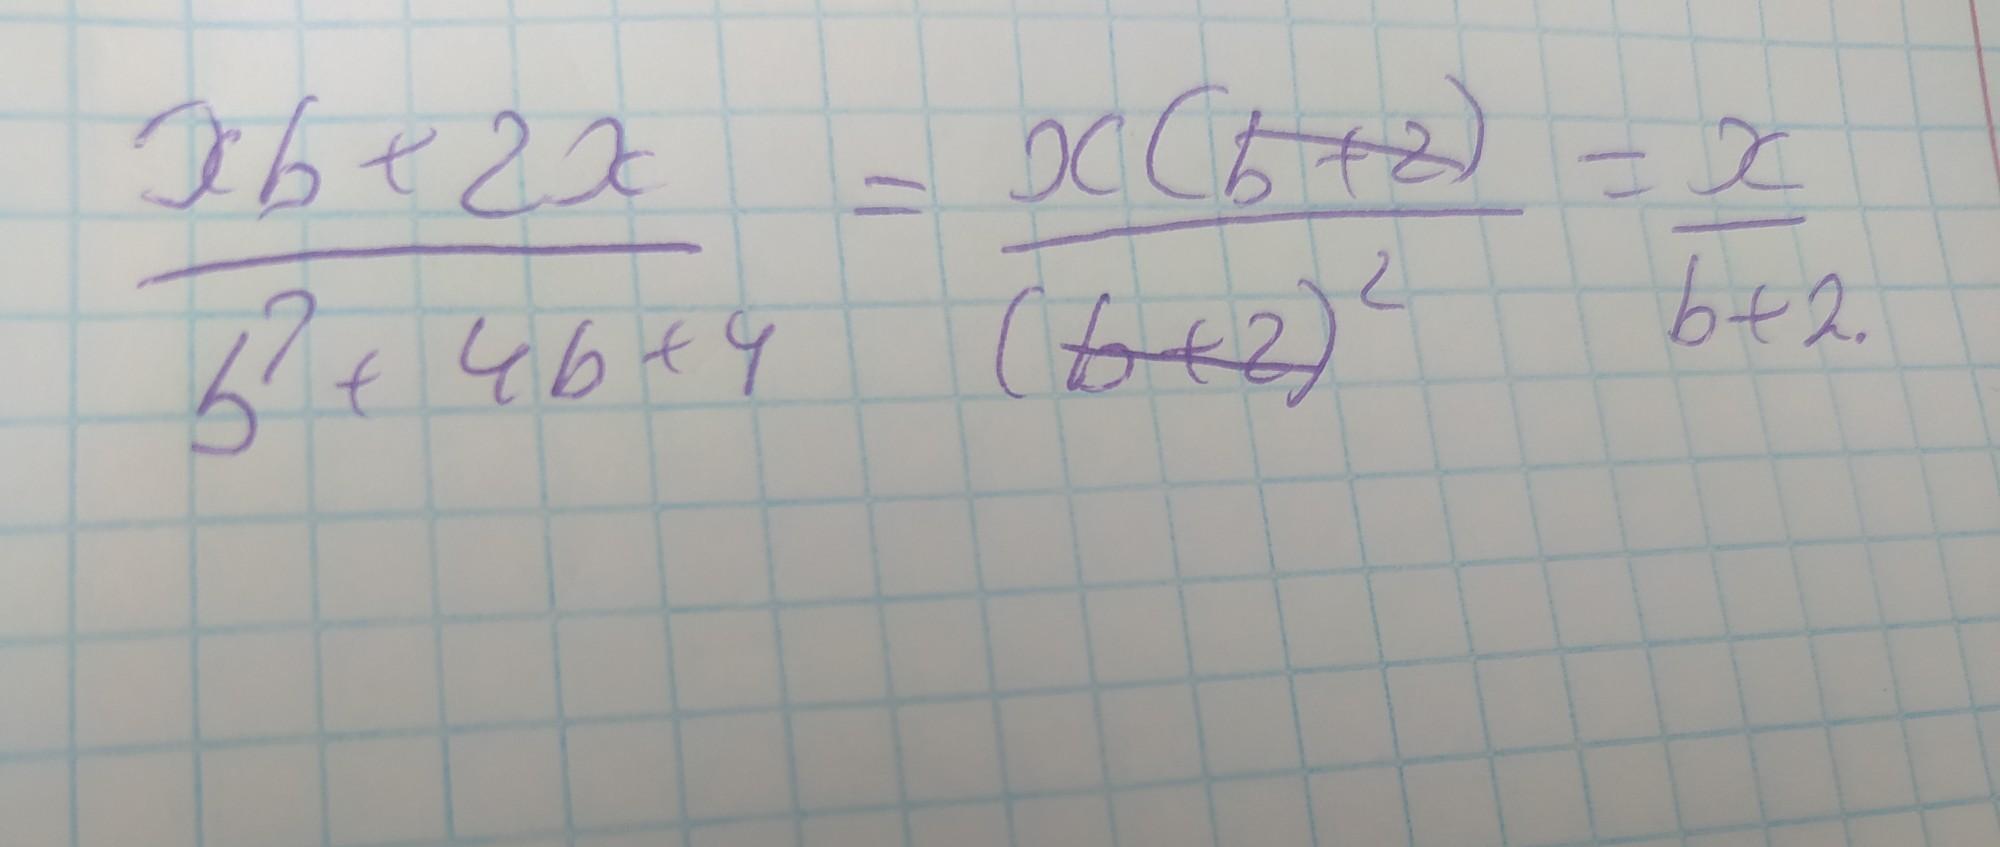 xb + 2x / b² + 4b + 4 = x(b+2) / (b+2)² = x / b+2.